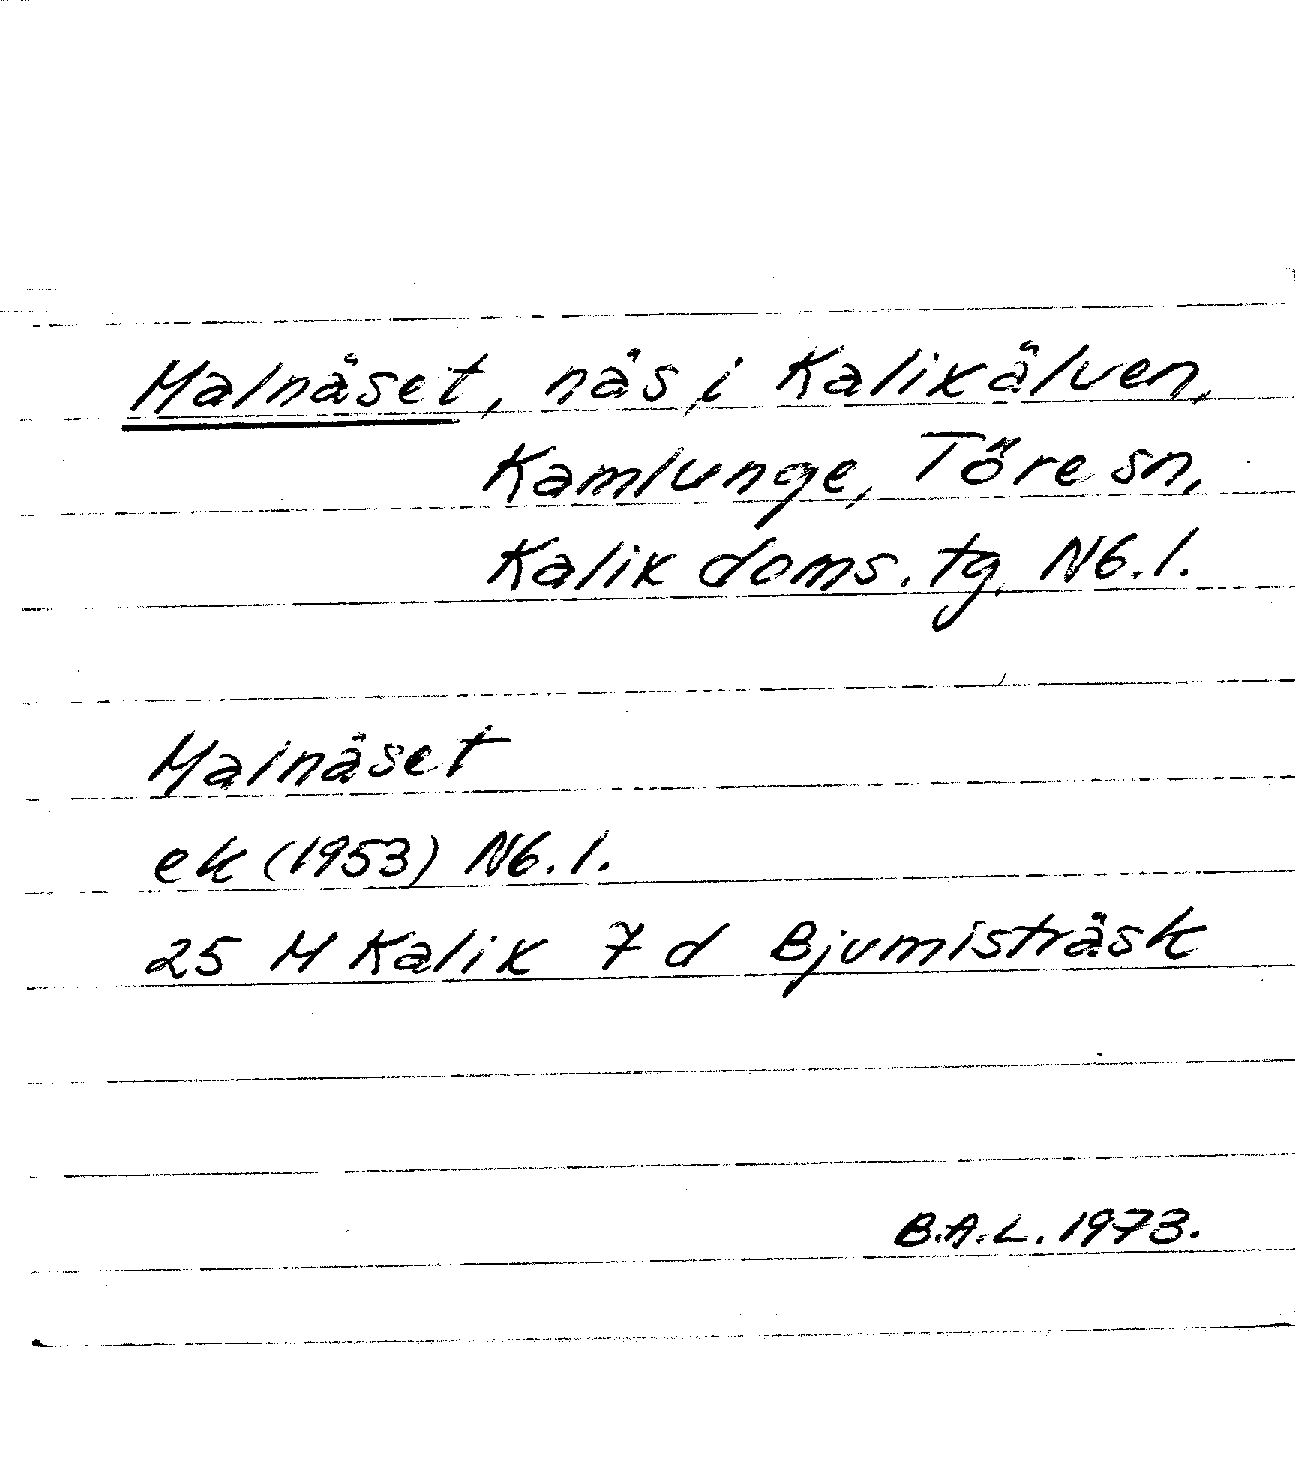 Malnäset, näs i Kalixälven,
Kamlunge, Töre sn,
Kalix doms. tg, Nb. l.
Malnäset
ek (1953) Nb. l.
25 M Kalix 7 d Bjumisträsk
B.A.L. 1973.